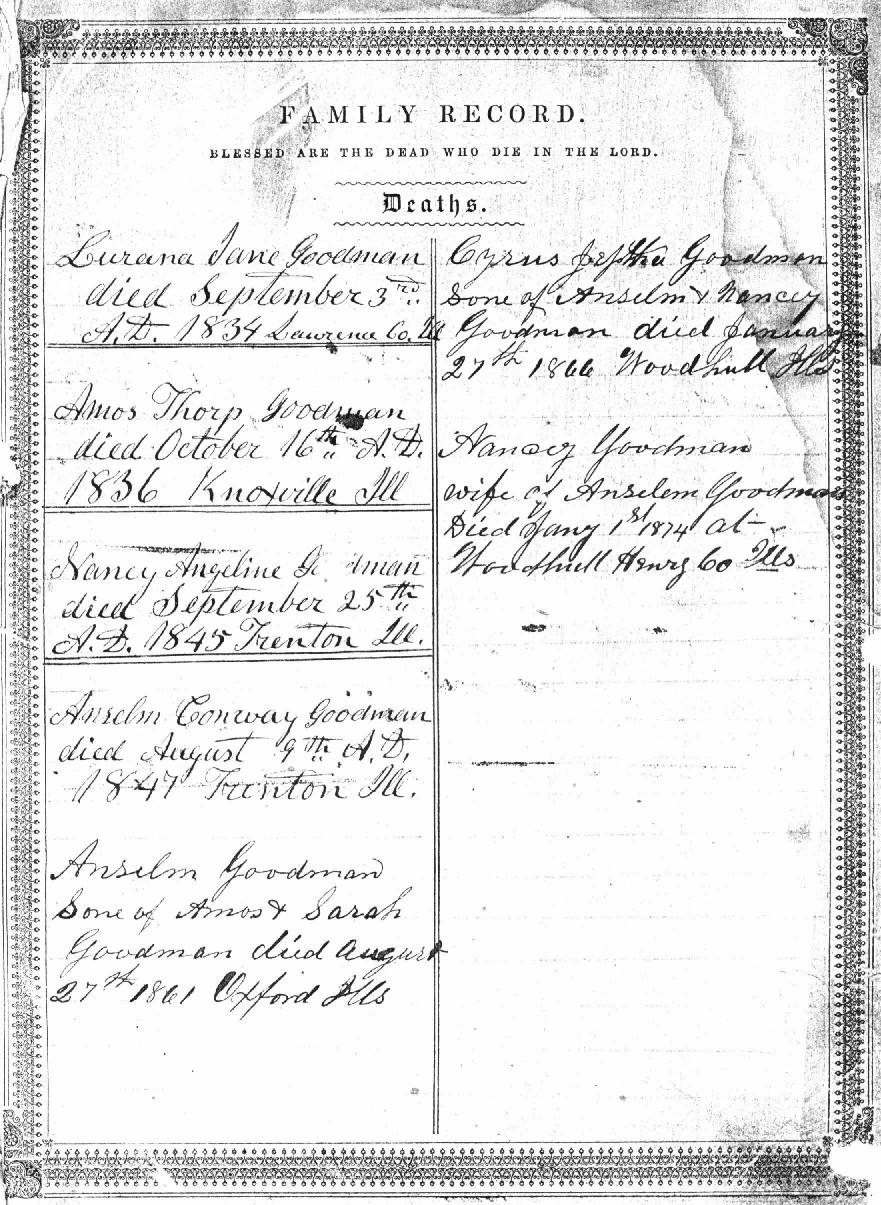 FAMILY RECORD.
BLESSED ARE THE DEAD WHO DIE IN THE LORD.
Deaths.
Lurana Jane Goodman
died September 3rd
A.D. 1834 Lawrence Co. Ill
Amos Thorp Goodman
died October 16th A.D.
1836 Knoxville Ill
Nancy Angeline Go dman
died September 25th
A.D. 1845 Trenton Ill.
Anselm Conway Goodman
died August 9th A.D.
1847 Trenton Ill.
Anselm Goodman
Sone of Amos & Sarah
Goodman died August
27st 1861 Oxford Ills
Cyrus Jeptha Goodman
Sone of Anselm & Nancey
Goodman died January
27th 1866 Woodhull Ills
Nancy Goodman
wife of Anselem Goodman
Died Jany 1st 1874 at
Woodhull Henry Co Ills